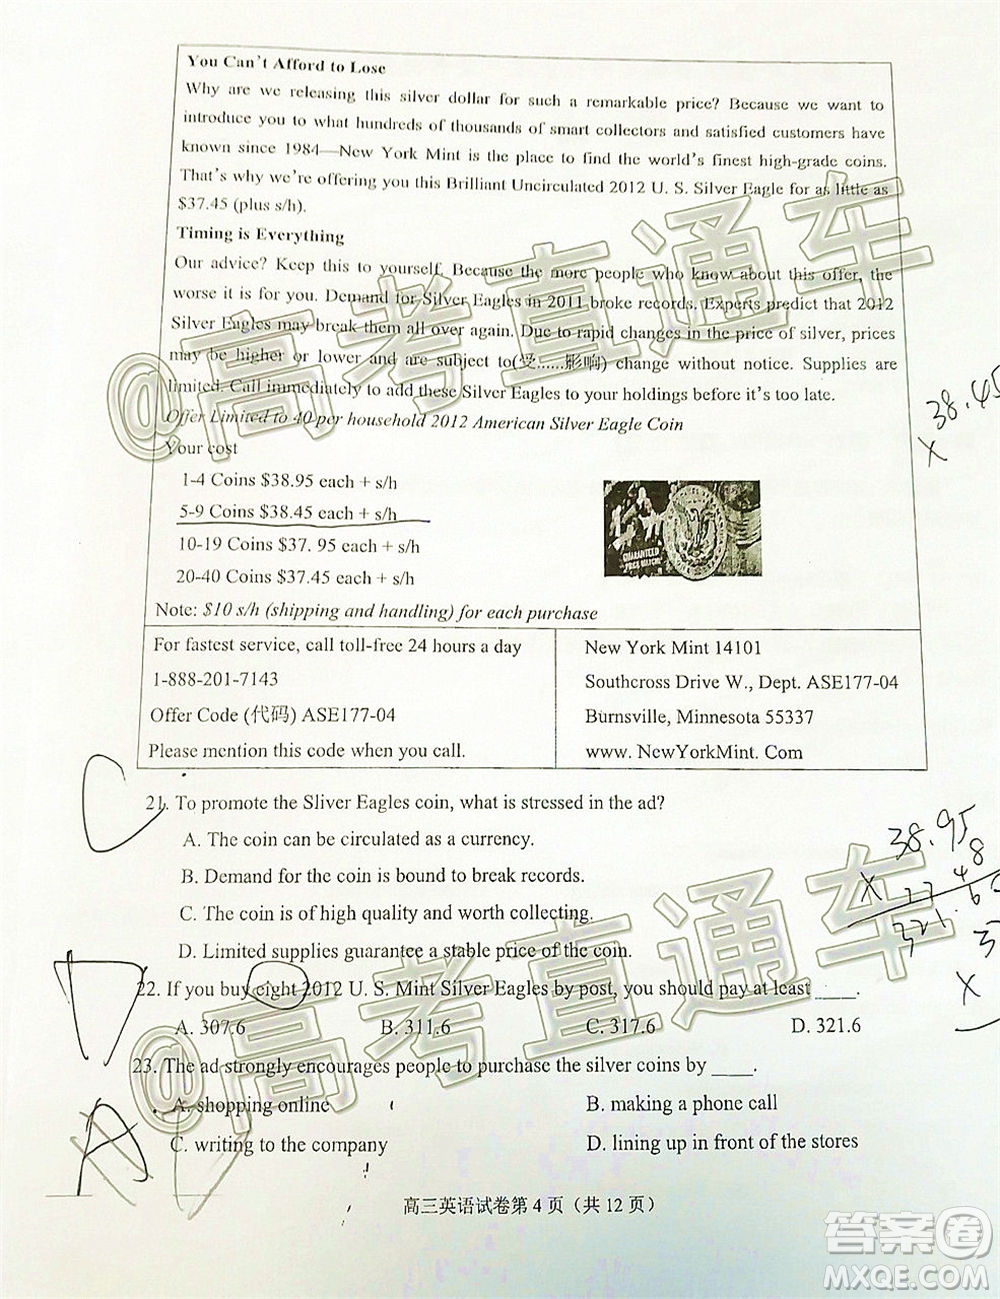 You Can't Afford to Lose
Why are we releasing this silver dollar for such a remarkable price? Because we want to
introduce you to what hundreds of thousands of smart collectors and satisfied customers have
known since 1984—New York Mint is the place to find the world's finest high-grade coins.
That's why we're offering you this Brilliant Uncirculated 2012 U. S. Silver Eagle for as little as
$37.45 (plus s/h).
Timing is Everything
Our advice? Keep this to yourself. Because the more people who know about this offer, the
worse it is for you. Demand for Silver Eagles in 2011 broke records. Experts predict that 2012
Silver Eagles may break them all over again. Due to rapid changes in the price of silver, prices
may be higher or lower and are subject to(受......影响) change without notice. Supplies are
limited. Call immediately to add these Silver Eagles to your holdings before it's too late.
Offer Limited to 40 per household 2012 American Silver Eagle Coin
Your cost
1-4 Coins $38.95 each + s/h
5-9 Coins $38.45 each + s/h
10-19 Coins $37. 95 each + s/h
20-40 Coins $37.45 each + s/h
GUARANTEED
Note: $10 s/h (shipping and handling) for each purchase
For fastest service, call toll-free 24 hours a day
1-888-201-7143
Offer Code (代码) ASE177-04
Please mention this code when you call.
New York Mint 14101
Southcross Drive W., Dept. ASE177-04
Burnsville, Minnesota 55337
www. NewYorkMint. Com
38.45
X
C
21. To promote the Sliver Eagles coin, what is stressed in the ad?
A. The coin can be circulated as a currency.
B. Demand for the coin is bound to break records.
C. The coin is of high quality and worth collecting.
D. Limited supplies guarantee a stable price of the coin.
38.95
8
X
D
22. If you buy eight 2012 U. S. Mint Silver Eagles by post, you should pay at least ____.
A. 307.6 B. 311.6 C. 317.6 D. 321.6
X
23. The ad strongly encourages people to purchase the silver coins by ____.
A. shopping online B. making a phone call
C. writing to the company D. lining up in front of the stores
A
高三英语试卷第 4 页（共 12 页）
@高考直通车
@高考直通车
答案圈
MXQE.COM